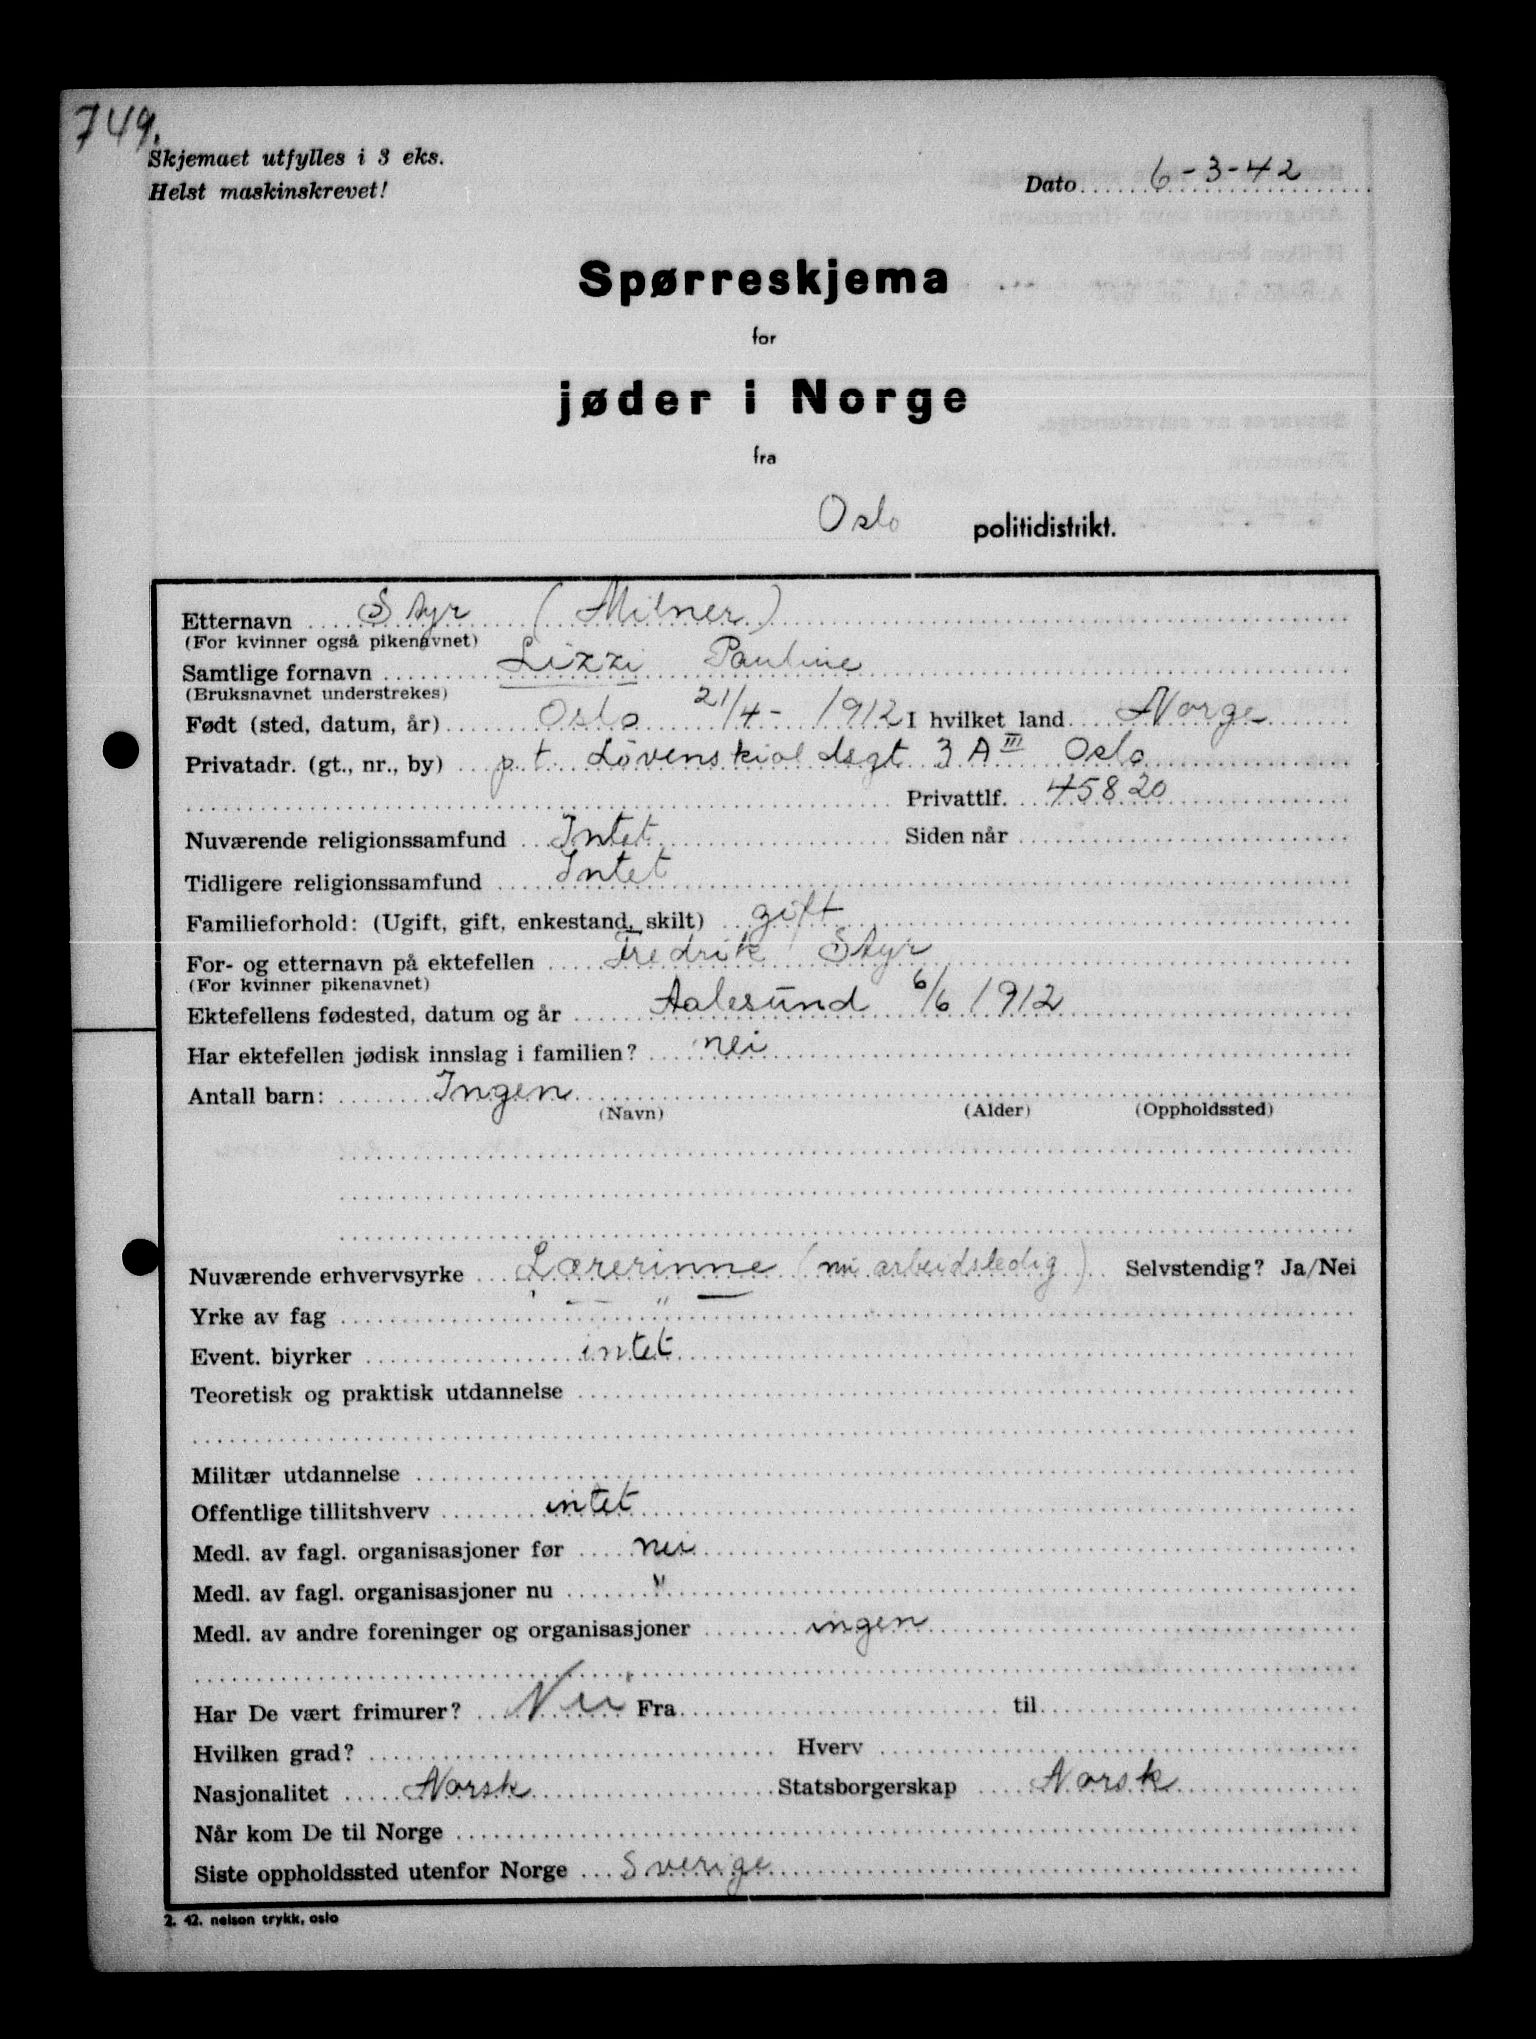 749.
Skjemaet utfylles i 3 eks.
Helst maskinskrevet!
Dato 6-3-42
Spørreskjema
for
jøder i Norge
fra
Oslo politidistrikt.
Etternavn Styr (Milner)
(For kvinner også pikenavnet)
Samtlige fornavn Lizzi Pauline
(Bruksnavnet understrekes)
Født (sted, datum, år) Oslo 21/4 - 1912 I hvilket land Norge
Privatadr. (gt., nr., by) p.t. Løvenskioldsgt 3 A III Oslo
Privattlf. 45820
Nuværende religionssamfund Intet Siden når
Tidligere religionssamfund Intet
Familieforhold: (Ugift, gift, enkestand, skilt) gift
For- og etternavn på ektefellen Fredrik Styr
(For kvinner pikenavnet)
Ektefellens fødested, datum og år Aalesund 6/6 1912
Har ektefellen jødisk innslag i familien? nei
Antall barn: Ingen
(Navn) (Alder) (Oppholdssted)
Nuværende erhvervsyrke Lærerinne (nu arbeidsledig) Selvstendig? Ja/Nei
Yrke av fag — " —
Event. biyrker intet
Teoretisk og praktisk utdannelse
Militær utdannelse
Offentlige tillitshverv intet
Medl. av fagl. organisasjoner før nei
Medl. av fagl. organisasjoner nu "
Medl. av andre foreninger og organisasjoner ingen
Har De vært frimurer? Nei Fra til
Hvilken grad? Hverv
Nasjonalitet Norsk Statsborgerskap Norsk
Når kom De til Norge
Siste oppholdssted utenfor Norge Sverige
2. 42. nelson trykk, oslo